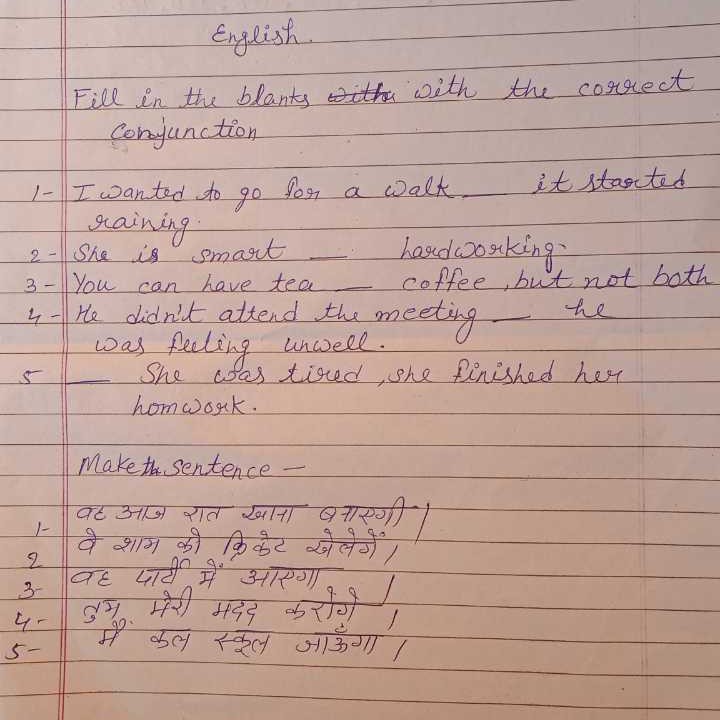 English.
Fill in the blanks with the correct
Conjunction
1- I wanted to go for a walk __ it started
raining.
2- She is smart __ hardworking.
3- You can have tea __ coffee, but not both
4- He didn't attend the meeting __ he
was feeling unwell.
5 __ She was tired, she finished her
homwork.
Make the sentence -
1- वह आज रात खाना बनाएगी।
2 वे शाम को क्रिकेट खेलेगें।
3- वह पार्टी में आएगा।
4- तुम मेरी मदद करोगे।
5- मैं कल स्कूल जाऊँगा।